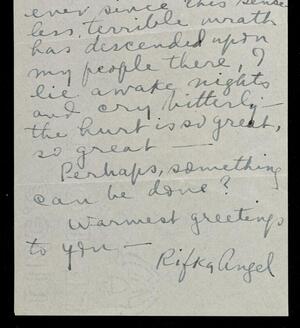 ever since this sense-
less, terrible wrath
has descended upon
my people there, I
lie awake nights
and cry bitterly —
the hurt is so great,
so great —
Perhaps, something
can be done?
Warmest greetings
to you —
Rifka Angel